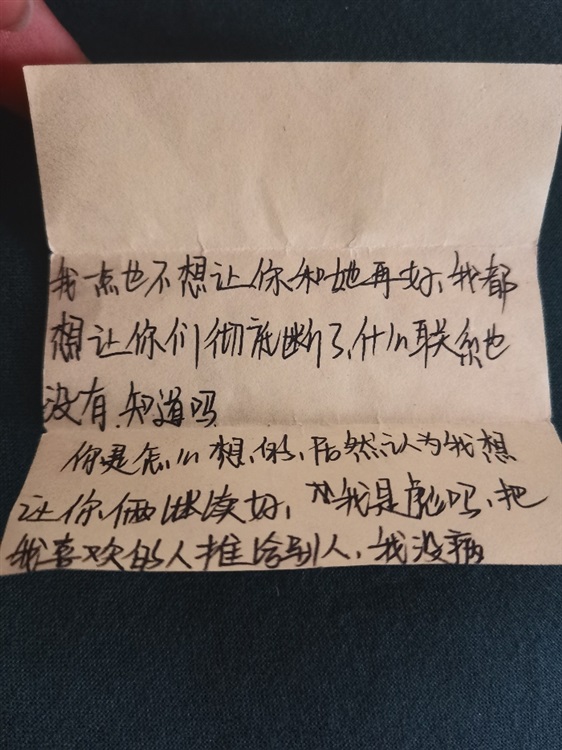 我一点也不想让你和她再好、我都
想让你们彻底断了、什么联系也
没有.知道吗
你是怎么想的,居然认为我想
让你俩继续好,我是彪吗,把
我喜欢的人推给别人,我没病